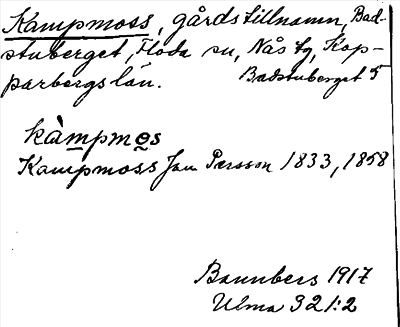 Kampmoss, gårdstillnamn, Bad-
stuberget, Floda sn, Nås tg, Kop-
parbergs län. Badstuberget 5
kàmpmos
Kampmoss Jan Persson 1833, 1858
Bannbers 1917
Ulma 321:2